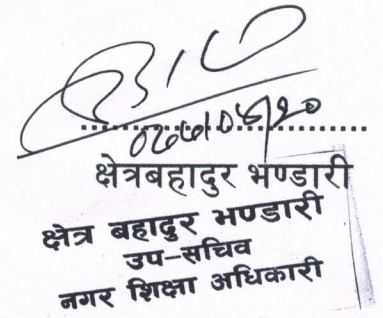 क्षेत्रबहादुर भण्डारी
क्षेत्र बहादुर भण्डारी
उप-सचिव
नगर शिक्षा अधिकारी